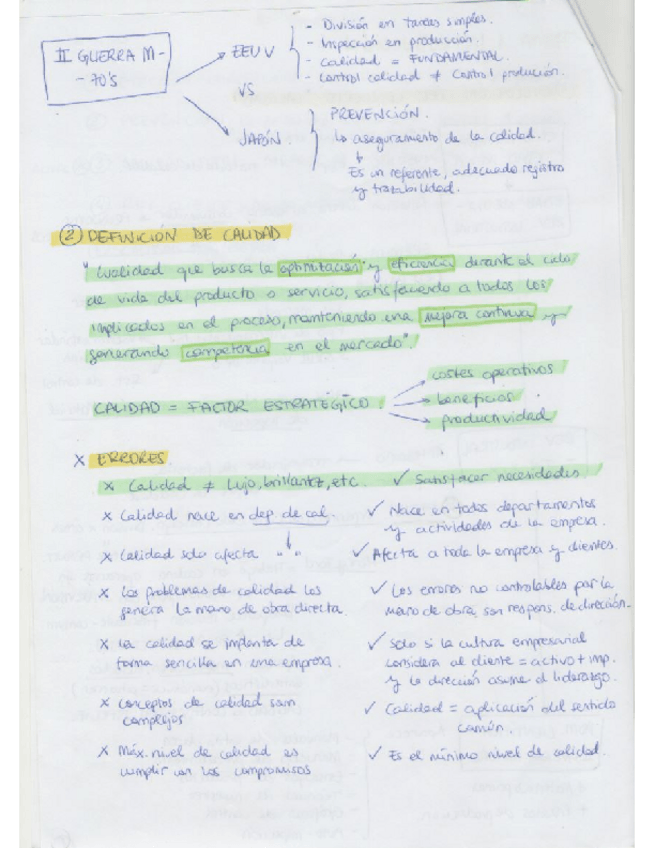 II GUERRA M -
- 70'S
EEUU
- División en tareas simples.
- Inspección en producción.
- Calidad = FUNDAMENTAL.
- Control calidad ≠ Control producción.
VS
JAPÓN.
PREVENCIÓN.
↳ aseguramiento de la calidad.
↓
Es un referente, adecuado registro
y trazabilidad.
② DEFINICIÓN DE CALIDAD
"Cualidad que busca la optimización y eficiencia durante el ciclo
de vida del producto o servicio, satisfaciendo a todos los
implicados en el proceso, manteniendo una mejora continua y
generando competencia en el mercado".
CALIDAD = FACTOR ESTRATÉGICO
costes operativos
beneficios
productividad
X ERRORES
X Calidad ≠ Lujo, brillantez, etc. ✓ Satisfacer necesidades.
X Calidad nace en dep. de cal. ✓ Nace en todos departamentos
y actividades de la empresa.
X Calidad solo afecta " " ✓ Afecta a toda la empresa y clientes.
X Los problemas de calidad los ✓ Los errores no controlables por la
genera la mano de obra directa. mano de obra, son respons. de dirección.
X La calidad se implanta de ✓ Solo si la cultura empresarial
forma sencilla en una empresa. considera al cliente = activo + imp.
y la dirección asume el liderazgo.
X Conceptos de calidad son ✓ Calidad = aplicación del sentido
complejos común.
X Máx. nivel de calidad es ✓ Es el mínimo nivel de calidad.
cumplir con los compromisos